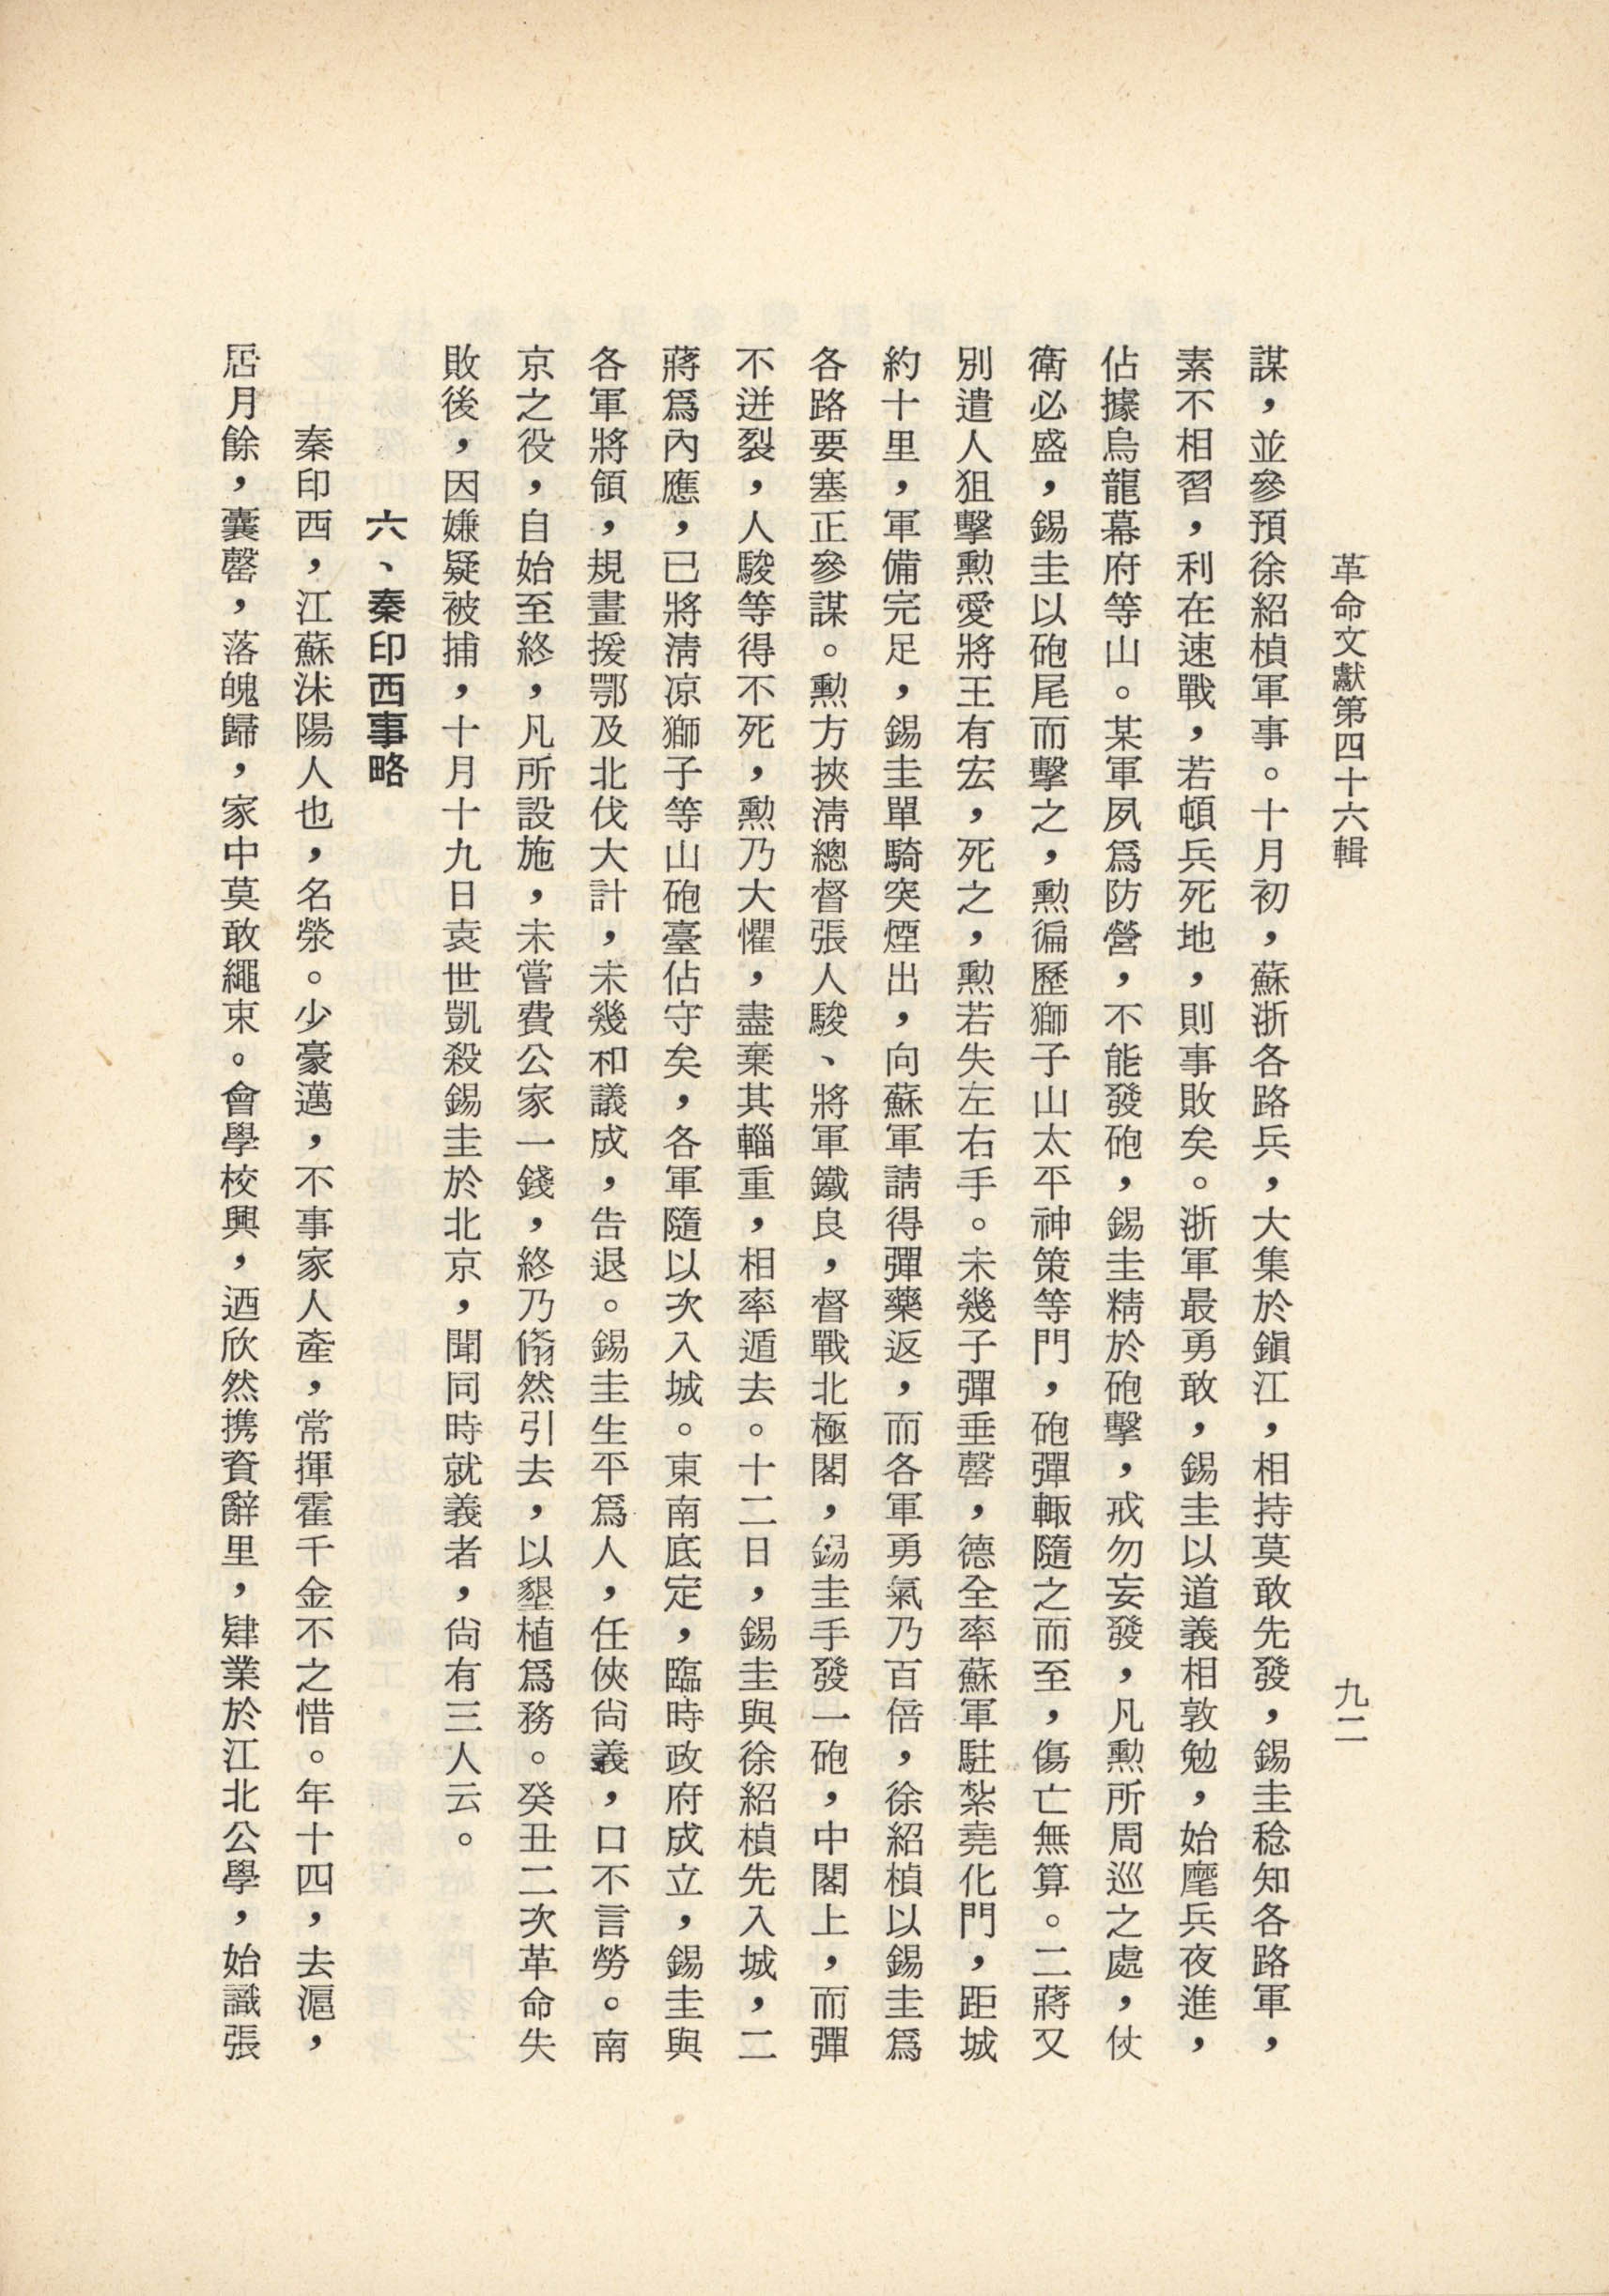 革命文獻第四十六輯
九二
謀，並參預徐紹楨軍事。十月初，蘇浙各路兵，大集於鎭江，相持莫敢先發，錫圭稔知各路軍，
素不相習，利在速戰，若頓兵死地，則事敗矣。浙軍最勇敢，錫圭以道義相敦勉，始麾兵夜進，
佔據烏龍幕府等山。某軍夙爲防營，不能發砲，錫圭精於砲擊，戒勿妄發，凡勳所周巡之處，仗
衛必盛，錫圭以砲尾而擊之，勳徧歷獅子山太平神策等門，砲彈輙隨之而至，傷亡無算。二蔣又
別遣人狙擊勳愛將王有宏，死之，勳若失左右手。未幾子彈垂罄，德全率蘇軍駐紮堯化門，距城
約十里，軍備完足，錫圭單騎突煙出，向蘇軍請得彈藥返，而各軍勇氣乃百倍，徐紹楨以錫圭爲
各路要塞正參謀。勳方挾淸總督張人駿、將軍鐵良，督戰北極閣，錫圭手發一砲，中閣上，而彈
不迸裂，人駿等得不死，勳乃大懼，盡棄其輜重，相率遁去。十二日，錫圭與徐紹楨先入城，二
蔣爲內應，已將淸凉獅子等山砲臺佔守矣，各軍隨以次入城。東南底定，臨時政府成立，錫圭與
各軍將領，規畫援鄂及北伐大計，未幾和議成，告退。錫圭生平爲人，任俠尙義，口不言勞。南
京之役，自始至終，凡所設施，未嘗費公家一錢，終乃翛然引去，以墾植爲務。癸丑二次革命失
敗後，因嫌疑被捕，十月十九日袁世凱殺錫圭於北京，聞同時就義者，尙有三人云。
六、秦印西事略
秦印西，江蘇沭陽人也，名滎。少豪邁，不事家人產，常揮霍千金不之惜。年十四，去滬，
居月餘，囊罄，落魄歸，家中莫敢繩束。會學校興，迺欣然携資辭里，肄業於江北公學，始識張